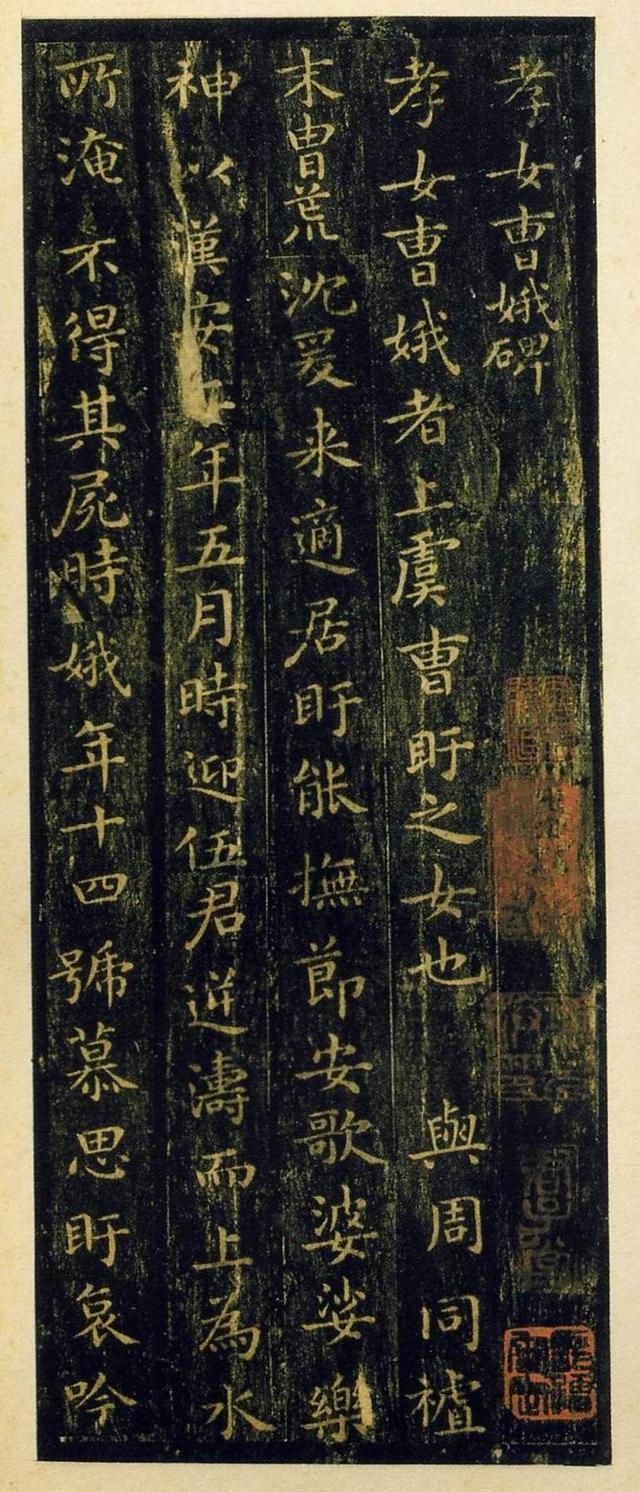 孝女曹娥碑
孝女曹娥者上虞曹盱之女也 與周同
末胄荒沈爰来適居盱能撫節安歌婆娑樂
神以漢安年五月時迎伍君逆濤而上為水
所淹不得其屍時娥年十四號慕思盱哀吟